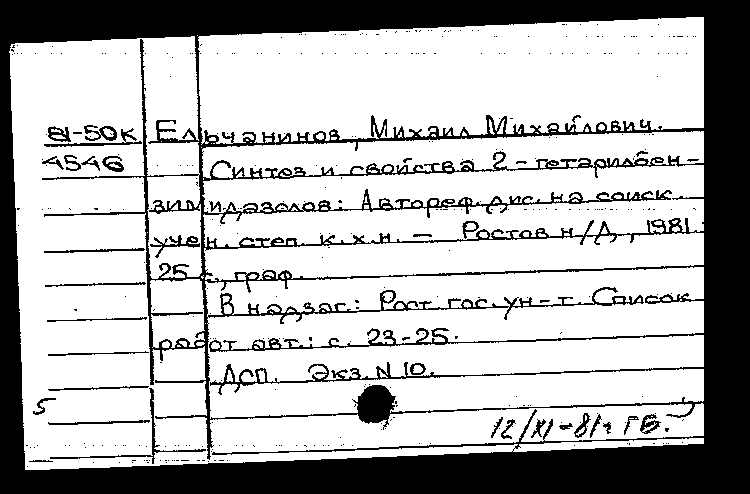 81-50к Ельчанинов, Михаил Михайлович.
4546 Синтез и свойства 2-гетарилбен-
зимидазолов: Автореф. дис. на соиск.
учен. степ. к.х.н. — Ростов н/Д, 1981.
25 с., граф.
В надзаг.: Рост. гос. ун-т. Список
работ авт.: с. 23-25.
ДСП. Экз. N 10.
5
12/XI-81г ГБ.